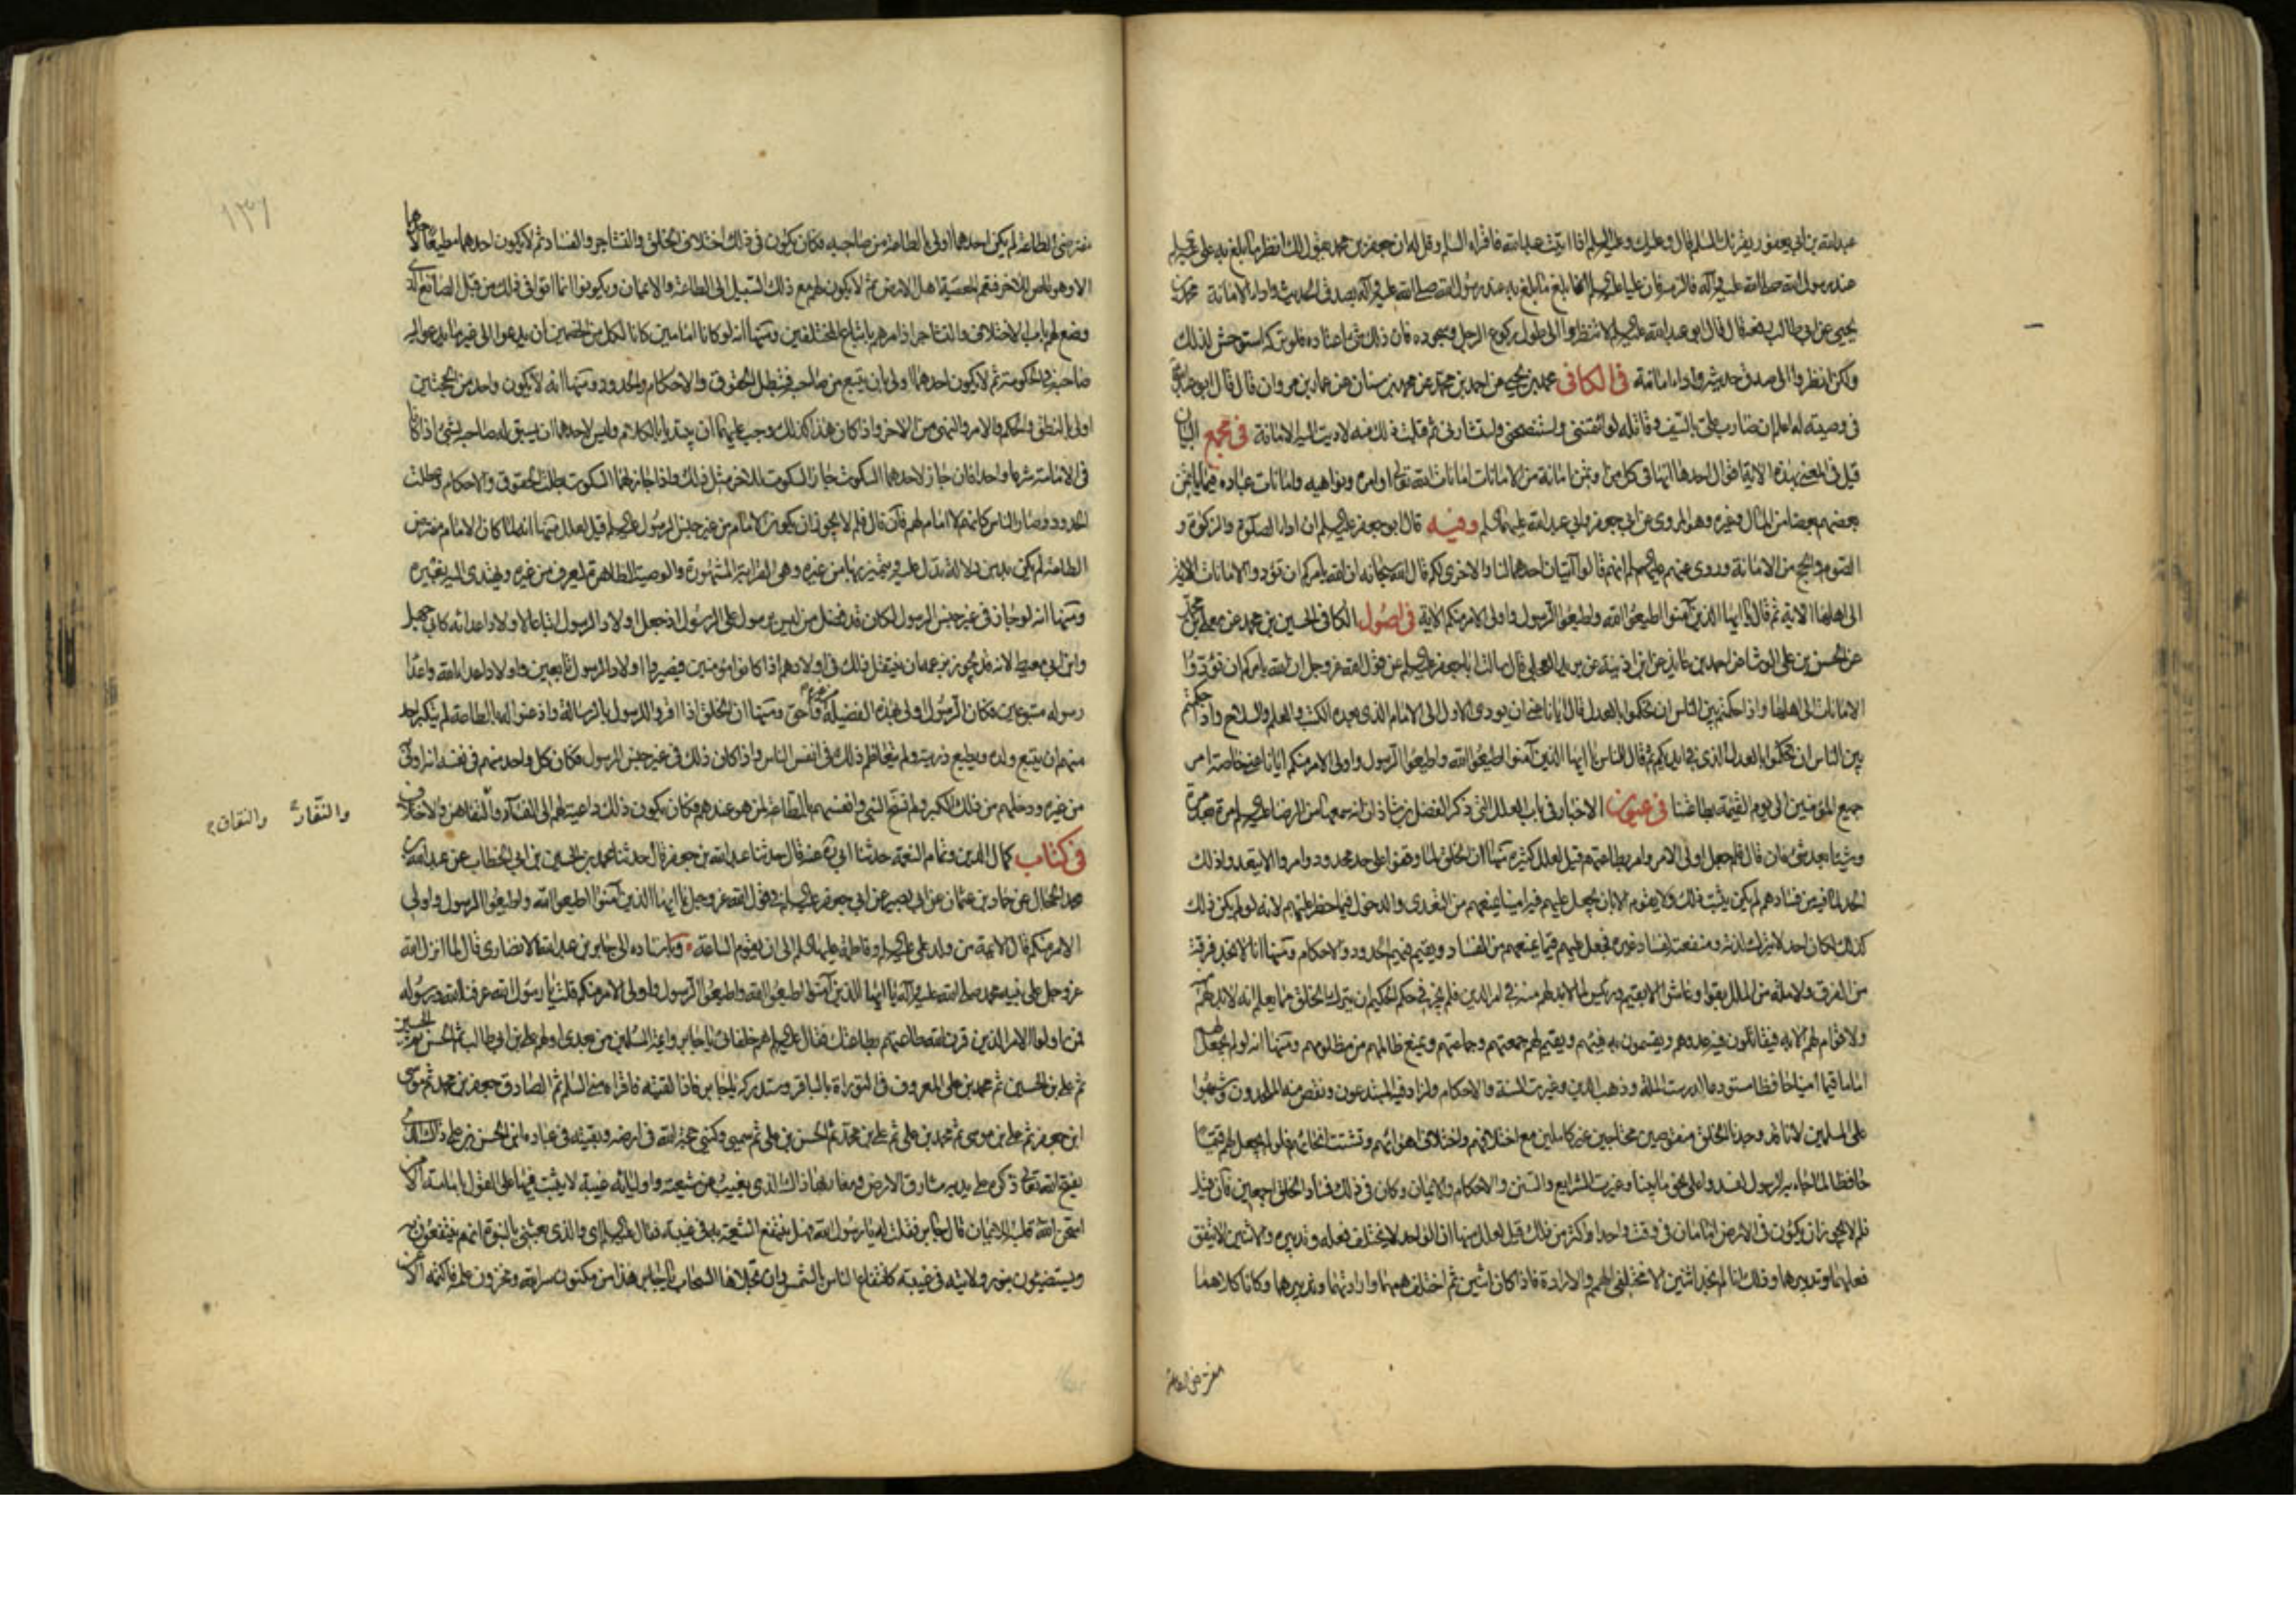 عبدالله بن ابي يعفور يقرئك السلم قال وعليك وعليه السلم اذا اتيت عبدالله فاقرأه السلم وقل له ان جعفر بن محمد يقول لك انظر ما بلغ به علي عليه السلم
عند رسول الله صلى الله عليه وآله فالزمه فان عليا عليه السلم انما بلغ ما بلغ به عند رسول الله صلى الله عليه وآله بصدق الحديث واداء الامانة محمد بن
يحيى عن ابي طالب رفعه قال قال ابو عبدالله عليه السلم لا تنظروا الى طول ركوع الرجل وسجوده فان ذلك شئ اعتاده فلو تركه استوحش لذلك
ولكن انظروا الى صدق حديثه واداء امانته في الكافي محمد بن يحيى عن احمد بن محمد عن محمد بن سنان عن عمار بن مروان قال قال ابو عبدالله
في وصيته له اعلم ان ضارب علي بالسيف وقاتله لو ائتمنني واستنصحني واستشارني ثم قبلت ذلك منه لاديت اليه الامانة في مجمع البيان
قيل في المعني بهذه الآية اقوال احدها انها في كل من اؤتمن امانة من الامانات امانات الله تعالى اوامره ونواهيه وامانات عباده فيما يأتمن
بعضهم بعضا من المال وغيره وهو المروى عن ابي جعفر وابي عبدالله عليهما السلم وفيه قال ابو جعفر عليه السلم ان اداء الصلوة والزكوة و
الصوم والحج من الامانة وروى عنهم عليهم السلم انهم قالوا آيتان احدهما لنا والاخرى لكم قال الله سبحانه ان الله يأمركم ان تؤدوا الامانات الاية
الى اهلها الاية ثم قال يا ايها الذين آمنوا اطيعوا الله واطيعوا الرسول واولى الامر منكم الاية في اصول الكافي الحسين بن محمد عن معلى بن محمد
عن الحسن بن علي الوشا عن احمد بن عائذ عن ابن اذينة عن بريد العجلي قال سالت ابا جعفر عليه السلم عن قول الله عز وجل ان الله يامركم ان تؤدوا
الامانات الى اهلها واذا حكمتم بين الناس ان تحكموا بالعدل قال ايانا عنى ان يودى الاول الى الامام الذى بعده الكتب والعلم والسلاح واذا حكمتم
بين الناس ان تحكموا بالعدل الذى في ايديكم ثم قال للناس يا ايها الذين آمنوا اطيعوا الله واطيعوا الرسول واولى الامر منكم ايانا عنى خاصة امر
جميع المؤمنين الى يوم القيمة بطاعتنا في عيون الاخبار في باب العلل التي ذكر الفضل بن شاذان انه سمعها من الرضا عليه السلم مرة بعد مرة
وشيئا بعد شئ فان قال فلم جعل اولى الامر وامر بطاعتهم قيل لعلل كثيرة منها ان الخلق لما وقفوا على حد محدود وامروا الا يتعدوا ذلك
الحد لما فيه من فسادهم لم يكن يثبت ذلك ولا يقوم الا بان يجعل عليهم فيه امينا يمنعهم من التعدى والدخول فيما حظر عليهم لانه لو لم يكن ذلك
كذلك لكان احد لا يترك لذته ومنفعته لفساد غيره فجعل عليهم قيما يمنعهم من الفساد ويقيم فيهم الحدود والاحكام ومنها انا لا نجد فرقة
من الفرق ولا ملة من الملل بقوا وعاشوا الا بقيم ورئيس لما لا بد لهم منه في امر الدين فلم يجز في حكم الحكيم ان يترك الخلق مما يعلم انه لا بد لهم منه
ولا قوام لهم الا به فيقاتلون فيه عدوهم ويقسمون به فيئهم ويقيم لهم جمعتهم وجماعتهم ويمنع ظالمهم من مظلومهم ومنها انه لو لم يجعل لهم
اماما قيما امينا حافظا مستودعا لدرست الملة وذهب الدين وغيرت السنة والاحكام ولزاد فيه المبتدعون ونقص منه الملحدون وشبهوا
على المسلمين لانا قد وجدنا الخلق منقوصين محتاجين غير كاملين مع اختلافهم واختلاف اهوائهم وتشتت انحائهم فلو لم يجعل لهم قيما
حافظا لما جاء به الرسول لفسدوا على نحو ما بينا وغيرت الشرايع والسنن والاحكام والايمان وكان في ذلك فساد الخلق اجمعين فان قيل
فلم لا يجوز ان يكون في الارض امامان في وقت واحد او اكثر من ذلك قيل لعلل منها ان الواحد لا يختلف فعله وتدبيره والاثنين لا يتفق
فعلهما وتدبيرهما وذلك انا لم نجد اثنين الا مختلفي الهم والارادة فاذا كانا اثنين ثم اختلف همهما وارادتهما وتدبيرهما وكانا كلاهما
مفترضى الطاعة
١٣٦
مفترضى الطاعة لم يكن احدهما اولى بالطاعة من صاحبه فكان يكون في ذلك اختلاف الخلق والتشاجر والفساد ثم لا يكون احدهما مطيعا لاحدهما
الا وهو عاص للاخر فتعم المعصية اهل الارض ثم لا يكون لهم مع ذلك السبيل الى الطاعة والايمان ويكونوا انما اتوا في ذلك من قبل الصانع الذى
وضع لهم باب الاختلاف والتشاجر اذ امرهم باتباع المختلفين ومنها انه لو كانا امامين كانا لكل من الخصمين ان يدعو الى غير ما يدعو اليه
صاحبه في الحكومة ثم لا يكون احدهما اولى بان يتبع من صاحبه فتبطل الحقوق والاحكام والحدود ومنها انه لا يكون واحد من الحجتين
اولى بالنطق والحكم والامر والنهى من الاخر واذا كان هذا كذلك وجب عليهما ان يبتديا بالكلام وليس لاحدهما ان يسبق له صاحبه بشئ اذا كانا
في الامامة شرعا واحدا فان جاز لاحدهما السكوت جاز السكوت للاخر مثل ذلك واذا جاز لهما السكوت بطلت الحقوق والاحكام وعطلت
الحدود وصار الناس كانهم لا امام لهم فان قال فلم لا يجوز ان يكون الامام من غير جنس الرسول عليه السلم قيل لعلل منها انه لما كان الامام مفترض
الطاعة لم يكن بد من دلالة تدل عليه ويتميز بها من غيره وهي القرابة المشهورة والوصية الظاهرة ليعرف من غيره ويهتدى اليه بعينه
ومنها انه لو جاز في غير جنس الرسول لكان قد فضل من ليس برسول على الرسول اذ جعل اولاد الرسول اتباعا لاولاد اعدائه كابي جهل
وابن ابي معيط لانه قد يجوز بزعمه ان ينتقل ذلك في اولادهم اذا كانوا مؤمنين فيصير اولاد الرسول تابعين واولاد اعداء الله واعداء
رسوله متبوعين فكان الرسول اولى بهذه الفضيلة من غيره واحق ومنها ان الخلق اذا اقروا للرسول بالرسالة واذعنوا له بالطاعة لم يتكبر احد
منهم ان يتبع ولده ويطيع ذريته ولم يتعاظم ذلك في انفس الناس واذا كان ذلك في غير جنس الرسول فكان كل واحد منهم في نفسه انه اولى به
من غيره ودخلهم من ذلك الكبر ولم تسنح انفسهم بالطاعة لمن هو عندهم فكان يكون ذلك داعية لهم الى الفساد والنفاق والاختلاف
والنفار والنفاق
في كتاب كمال الدين وتمام النعمة حدثنا ابي ره عنه قال حدثنا عبدالله بن جعفر قال حدثنا محمد بن الحسين بن ابي الخطاب عن عبدالله بن
محمد الحجال عن حماد بن عثمان عن ابي بصير عن ابي جعفر عليه السلم في قول الله عز وجل يا ايها الذين آمنوا اطيعوا الله واطيعوا الرسول واولى
الامر منكم قال الائمة من ولد علي عليه السلم وفاطمة عليها السلم الى ان يقوم الساعة وباسناده الى جابر بن عبدالله الانصارى قال لما انزل الله
عز وجل على نبيه محمد صلى الله عليه وآله يا ايها الذين آمنوا اطيعوا الله واطيعوا الرسول واولى الامر منكم قلت يا رسول الله عرفنا الله ورسوله
فمن اولوا الامر الذين قرن الله طاعتهم بطاعتك فقال عليه السلم هم خلفائي يا جابر وائمة المسلمين من بعدى اولهم علي بن ابي طالب ثم الحسن ثم الحسين
ثم علي بن الحسين ثم محمد بن علي المعروف في التوراة بالباقر وستدركه يا جابر فاذا لقيته فاقرأه مني السلم ثم الصادق جعفر بن محمد ثم موسى
ابن جعفر ثم علي بن موسى ثم محمد بن علي ثم علي بن محمد ثم الحسن بن علي ثم سميي وكنيي حجة الله في ارضه وبقيته في عباده ابن الحسن بن علي ذاك الذى
يفتح الله تعالى ذكره على يديه مشارق الارض ومغاربها ذاك الذى يغيب عن شيعته واوليائه غيبة لا يثبت فيها على القول بامامته الا من
امتحن الله قلبه للايمان قال جابر فقلت له يا رسول الله فهل ينتفع الشيعة به في غيبته فقال عليه السلم اى والذى بعثني بالنبوة انهم ينتفعون به
ويستضيئون بنور ولايته في غيبته كانتفاع الناس بالشمس وان تجللها السحاب يا جابر هذا من مكنون سر الله ومخزون علمه فاكتمه الا عن